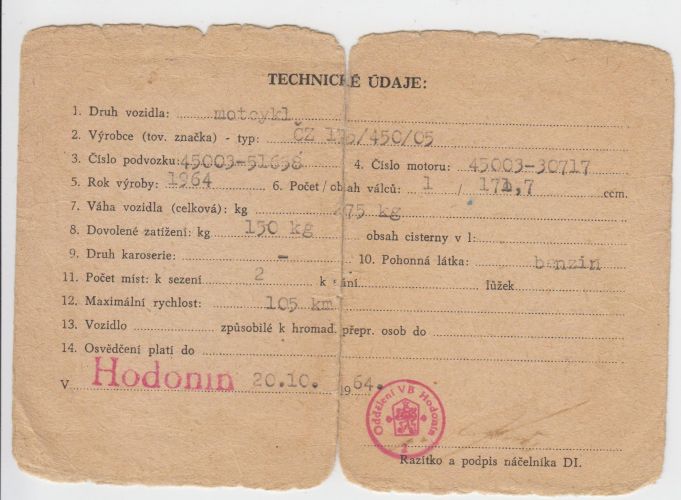 TECHNICKÉ ÚDAJE:
1. Druh vozidla: motocykl
2. Výrobce (tov. značka) - typ: ČZ 175/450/05
3. Číslo podvozku: 45003-51638 4. Číslo motoru: 45003-30717
5. Rok výroby: 1964 6. Počet/obsah válců: 1 / 171,7 ccm.
7. Váha vozidla (celková): kg 275 kg
8. Dovolené zatížení: kg 150 kg obsah cisterny v l:
9. Druh karoserie: - 10. Pohonná látka: benzin
11. Počet míst: k sezení 2 k stání lůžek
12. Maximální rychlost: 105 km
13. Vozidlo způsobilé k hromad. přepr. osob do
14. Osvědčení platí do
V Hodonín 20.10. 1964.
Oddělení VB Hodonín
Razítko a podpis náčelníka DI.